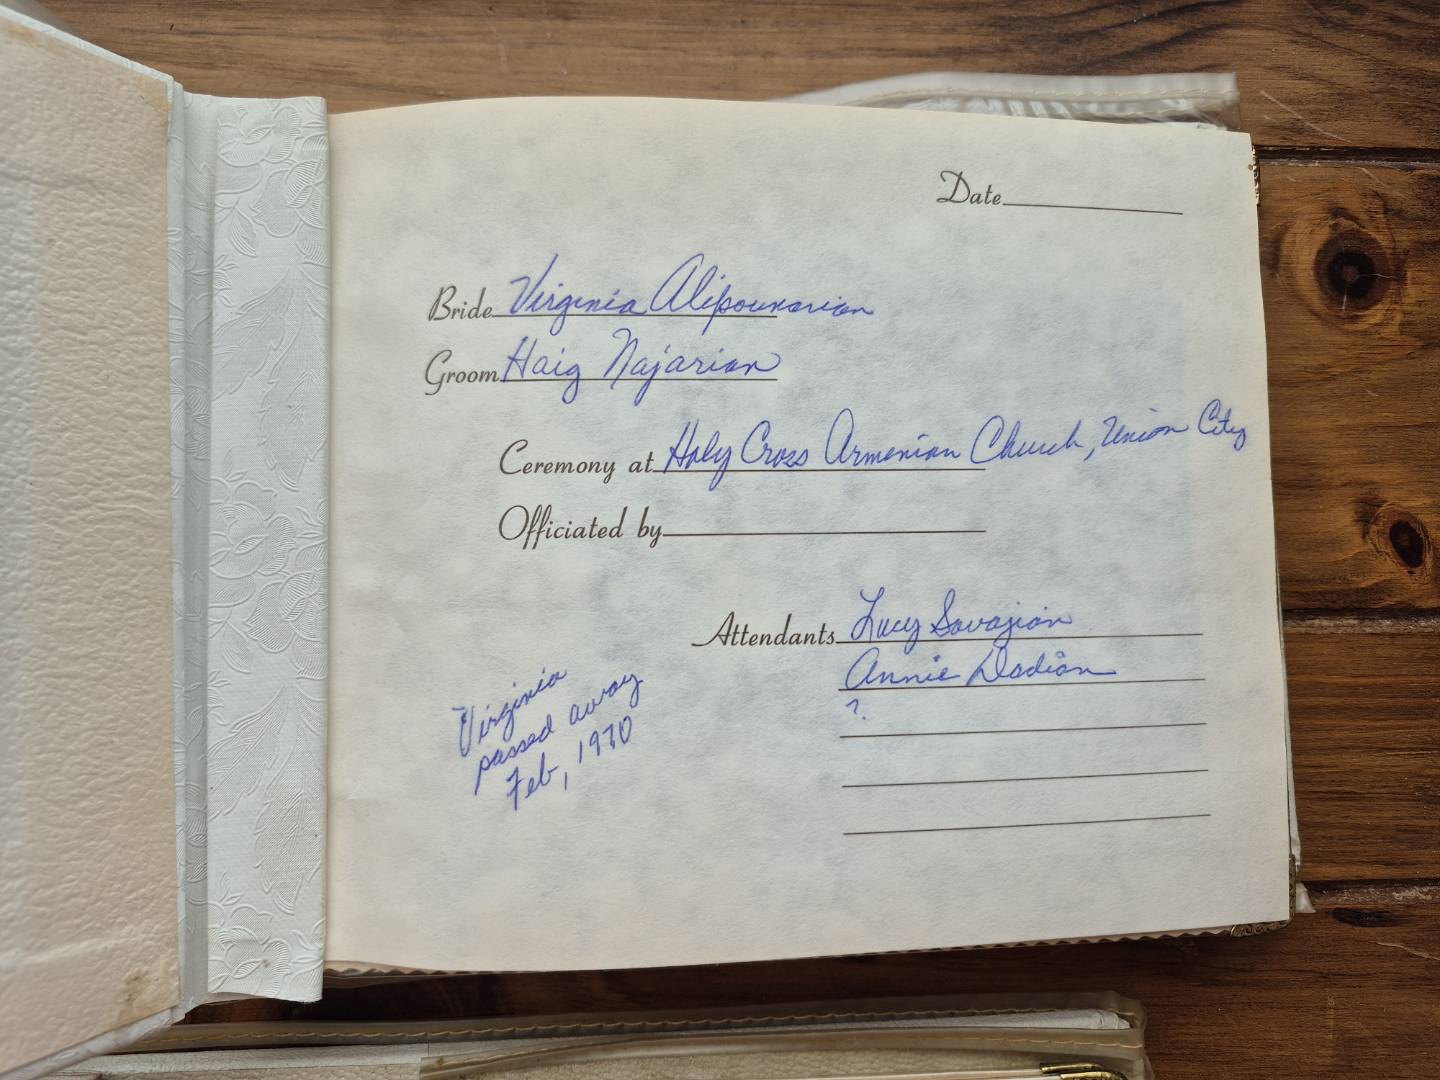 Date
Bride Virginia Alipounarian
Groom Haig Najarian
Ceremony at Holy Cross Armenian Church, Union City
Officiated by
Attendants Lucy Savajian
Annie Dadian
?.
Virginia
passed away
Feb, 1970